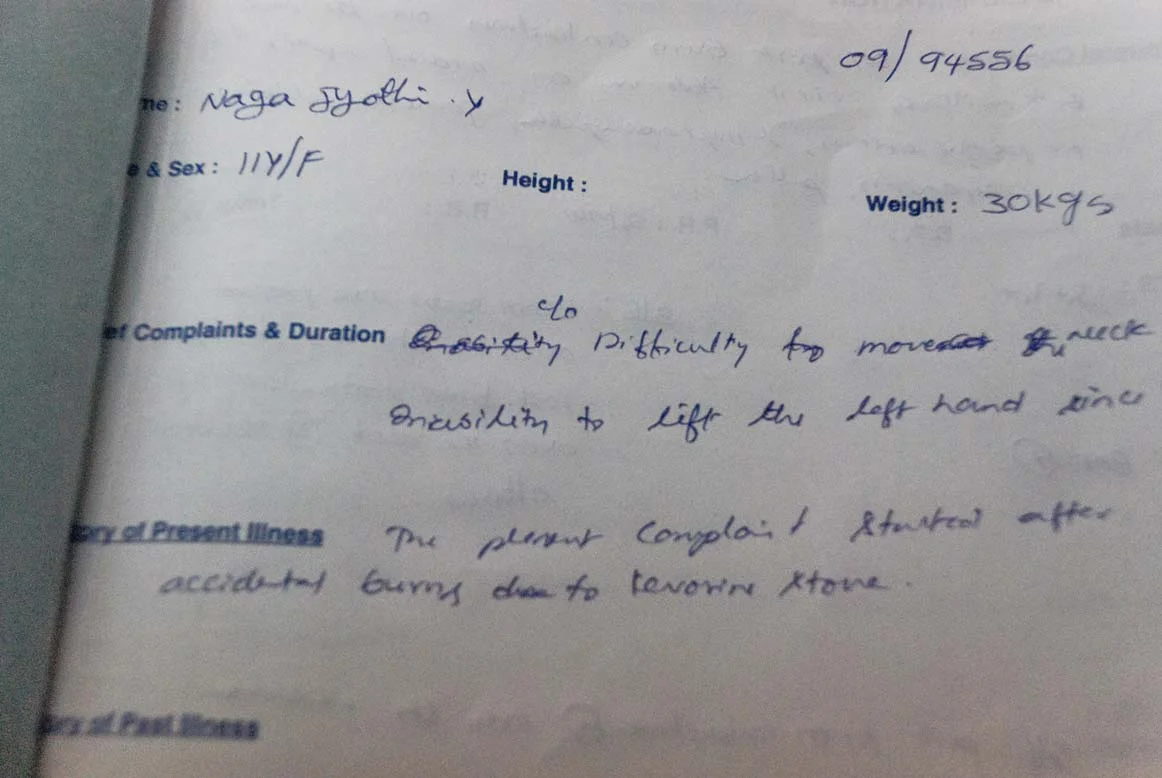 09/94556
me : Naga Jyothi . Y
& Sex : 11Y/F
Height :
Weight : 30kgs
c/o
ef Complaints & Duration Difficulty to move neck
to lift the left hand since
ory of Present Illness The present Complaint started after
accidental burns due to kerosine stove .
ory of Past Illness